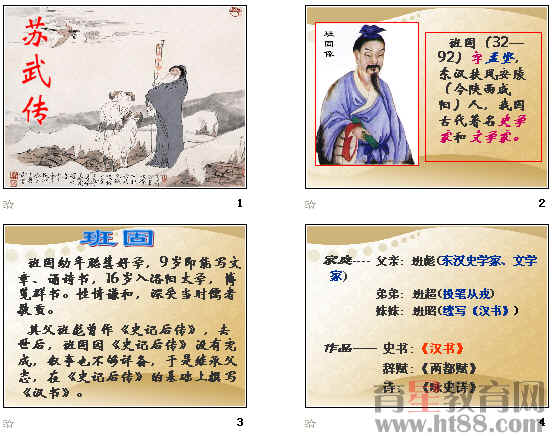 苏武传
1
班固像
班固(32—
92)字孟坚,
东汉扶风安陵
(今陕西咸
阳)人,我国
古代著名史学
家和文学家。
2
班固
班固幼年聪慧好学,9岁即能写文
章、诵诗书,16岁入洛阳太学,博
览群书。性情谦和,深受当时儒者
敬重。
其父班彪曾作《史记后传》,去
世后,班固因《史记后传》没有完
成,叙事也不够详备,于是继承父
志,在《史记后传》的基础上撰写
《汉书》。
3
家庭---- 父亲:班彪(东汉史学家、文学
家)
弟弟:班超(投笔从戎)
妹妹:班昭(续写《汉书》)
作品---- 史书:《汉书》
辞赋:《两都赋》
诗:《咏史诗》
4
育星教育网
www.ht88.com